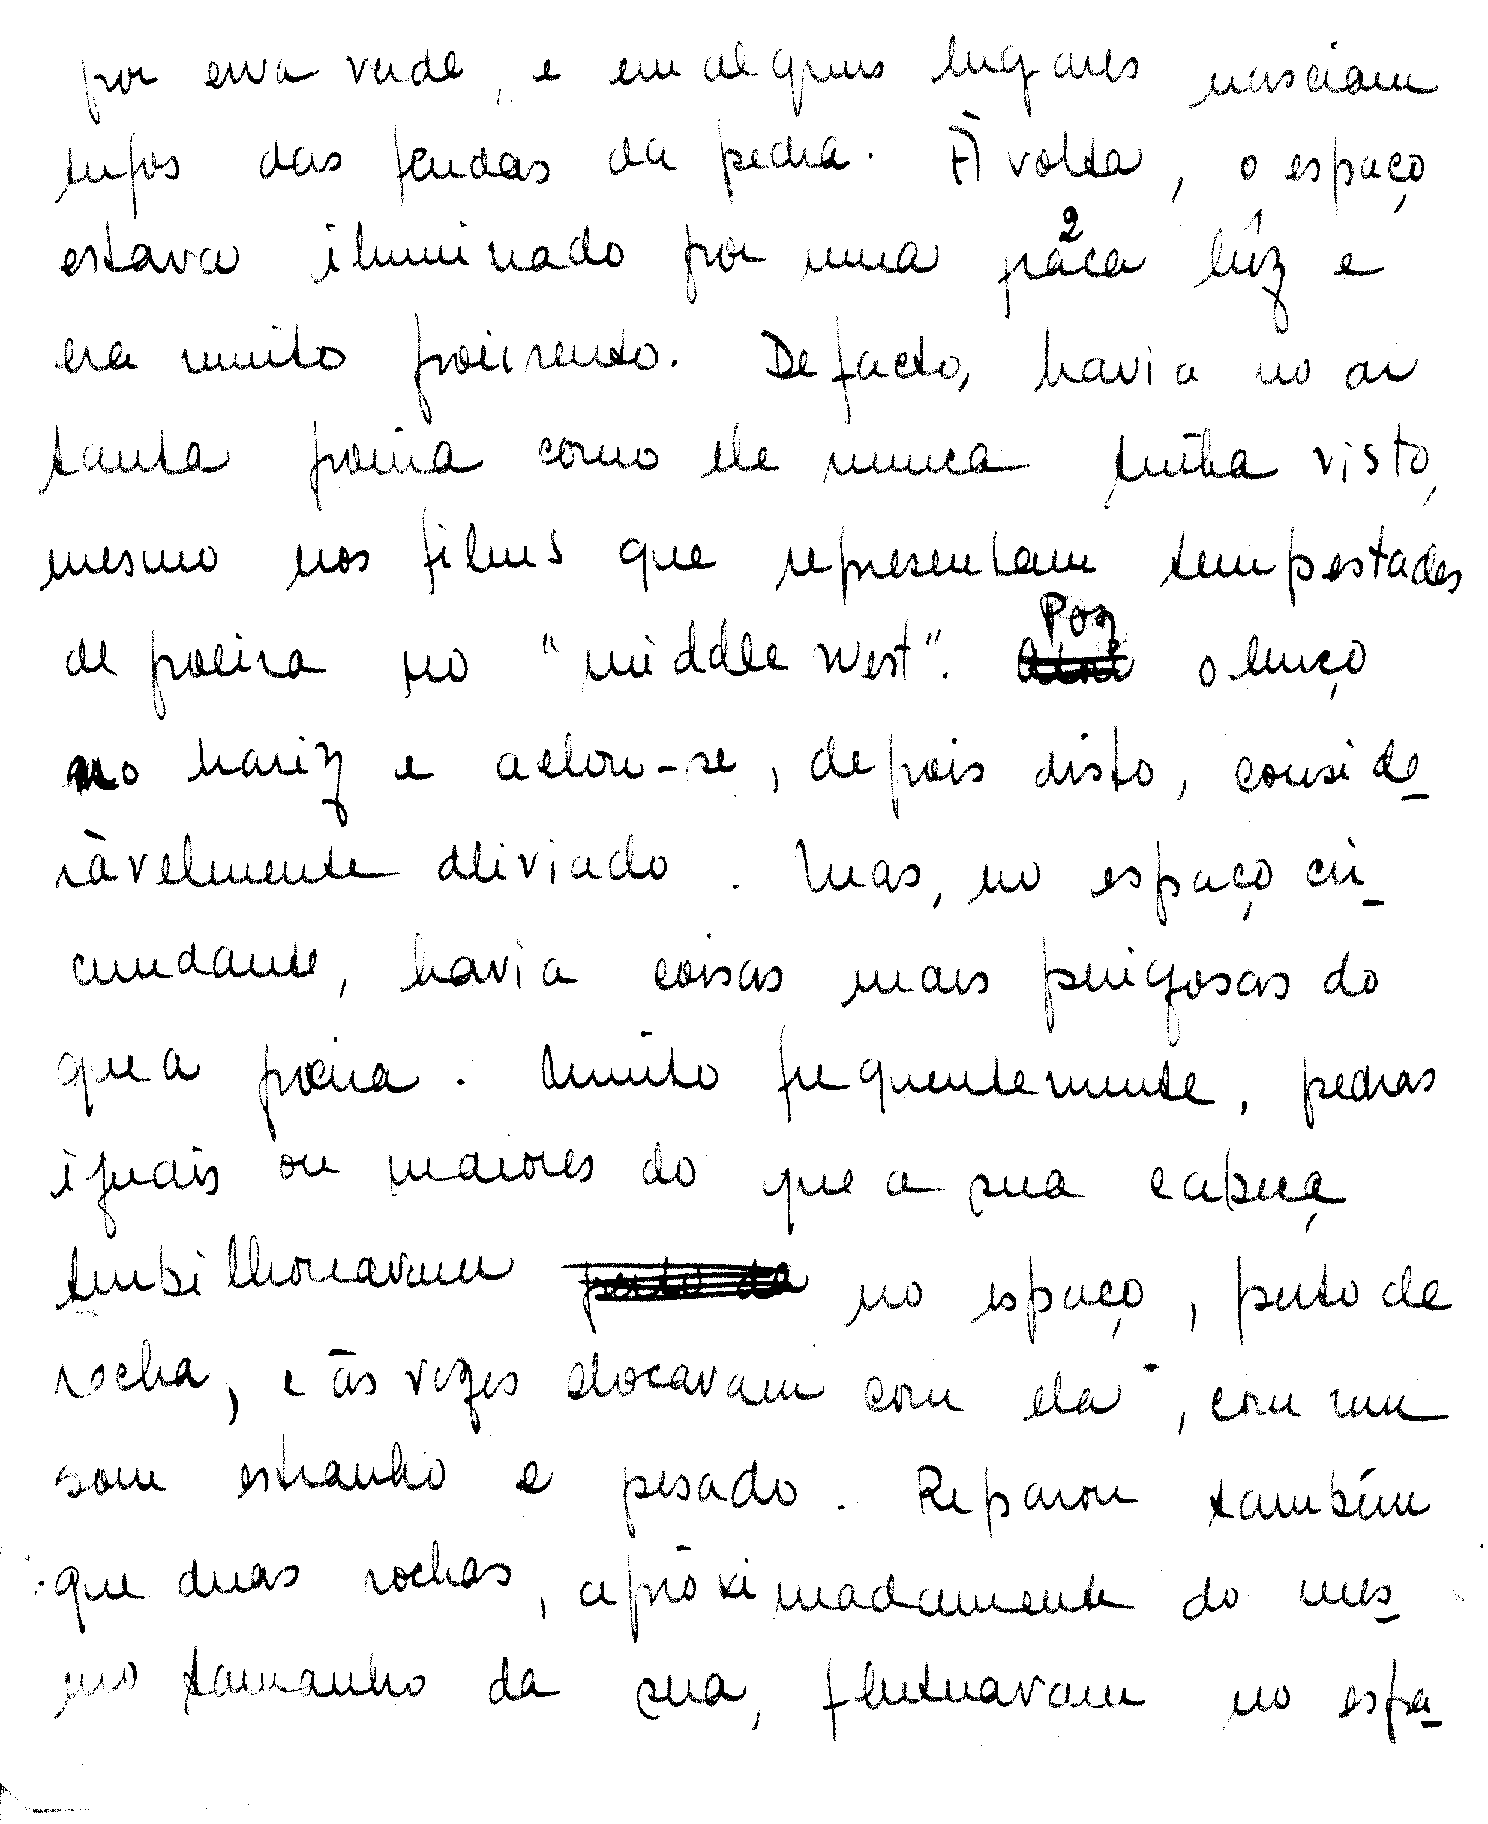 por erva verde, e em alguns lugares nasciam
tufos das fendas da pedra. À volta, o espaço
estava iluminado por uma luz e
era muito poeirento. De facto, havia no ar
tanta poeira como ele nunca tinha visto,
mesmo nos films que representam tempestades
de poeira no "middle west". Poz o lenço
no nariz e achou-se, depois disto, conside-
ràvelmente aliviado. Mas, no espaço cir-
cundante, havia coisas mais perigosas do
que a poeira. Muito frequentemente, pedras
iguais ou maiores do que a sua cabeça
turbilhonavam no espaço, perto de
rocha, e às vezes chocavam com ela, com um
som estranho e pesado. Reparou também
que duas rochas, apròximadamente do mes-
mo tamanho da sua, flutuavam no espa-